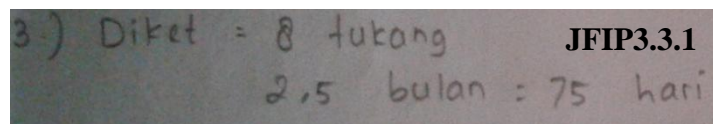 3.) Diket = 8 tukang JFIP3.3.1
2,5 bulan = 75 hari